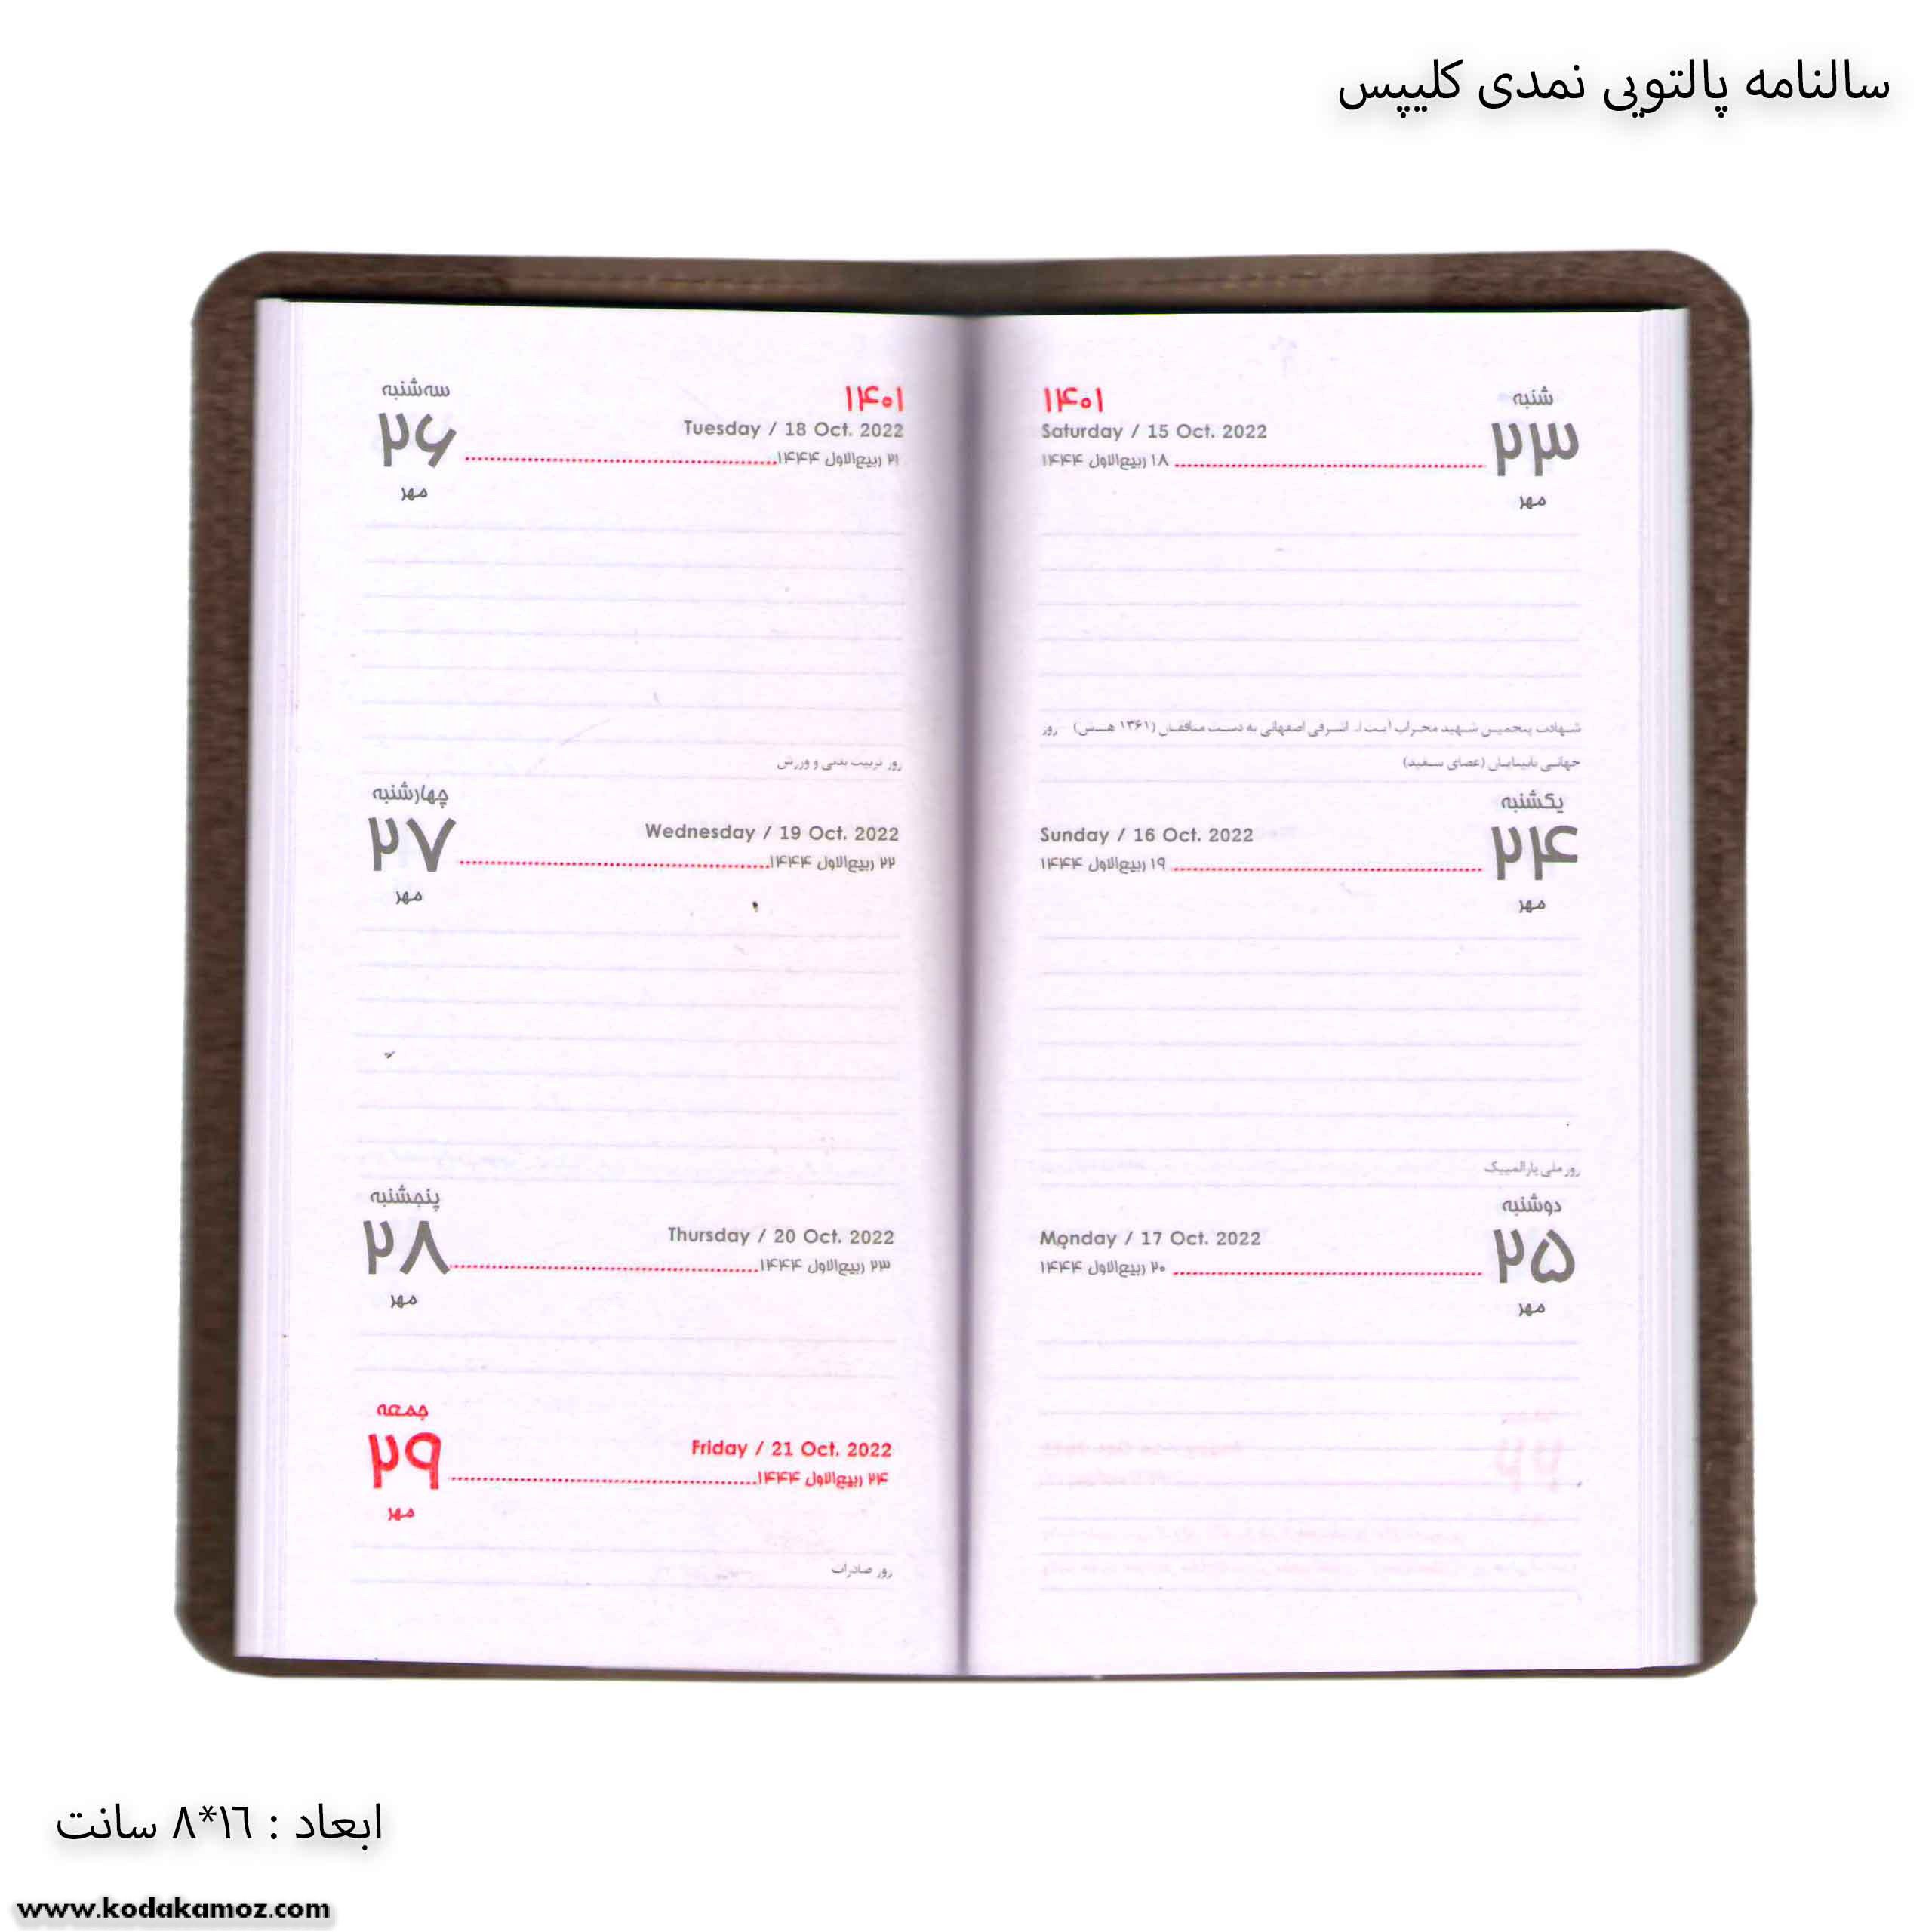 سالنامه پالتویی نمدی کلیپس
شنبه
۲۳
مهر
۱۴۰۱
Saturday / 15 Oct. 2022
۱۸ ربیع‌الاول ۱۴۴۴
شهادت پنجمین شهید محراب آیت ا... اشرفی اصفهانی به دست منافقان (۱۳۶۱ هـ.ش) روز
جهانی نابینایان (عصای سفید)
یکشنبه
۲۴
مهر
Sunday / 16 Oct. 2022
۱۹ ربیع‌الاول ۱۴۴۴
روز ملی پارالمپیک
دوشنبه
۲۵
مهر
Monday / 17 Oct. 2022
۲۰ ربیع‌الاول ۱۴۴۴
سه‌شنبه
۲۶
مهر
۱۴۰۱
Tuesday / 18 Oct. 2022
۲۱ ربیع‌الاول ۱۴۴۴
روز تربیت بدنی و ورزش
چهارشنبه
۲۷
مهر
Wednesday / 19 Oct. 2022
۲۲ ربیع‌الاول ۱۴۴۴
پنجشنبه
۲۸
مهر
Thursday / 20 Oct. 2022
۲۳ ربیع‌الاول ۱۴۴۴
جمعه
۲۹
مهر
Friday / 21 Oct. 2022
۲۴ ربیع‌الاول ۱۴۴۴
روز صادرات
ابعاد : ۱٦*۸ سانت
www.kodakamoz.com